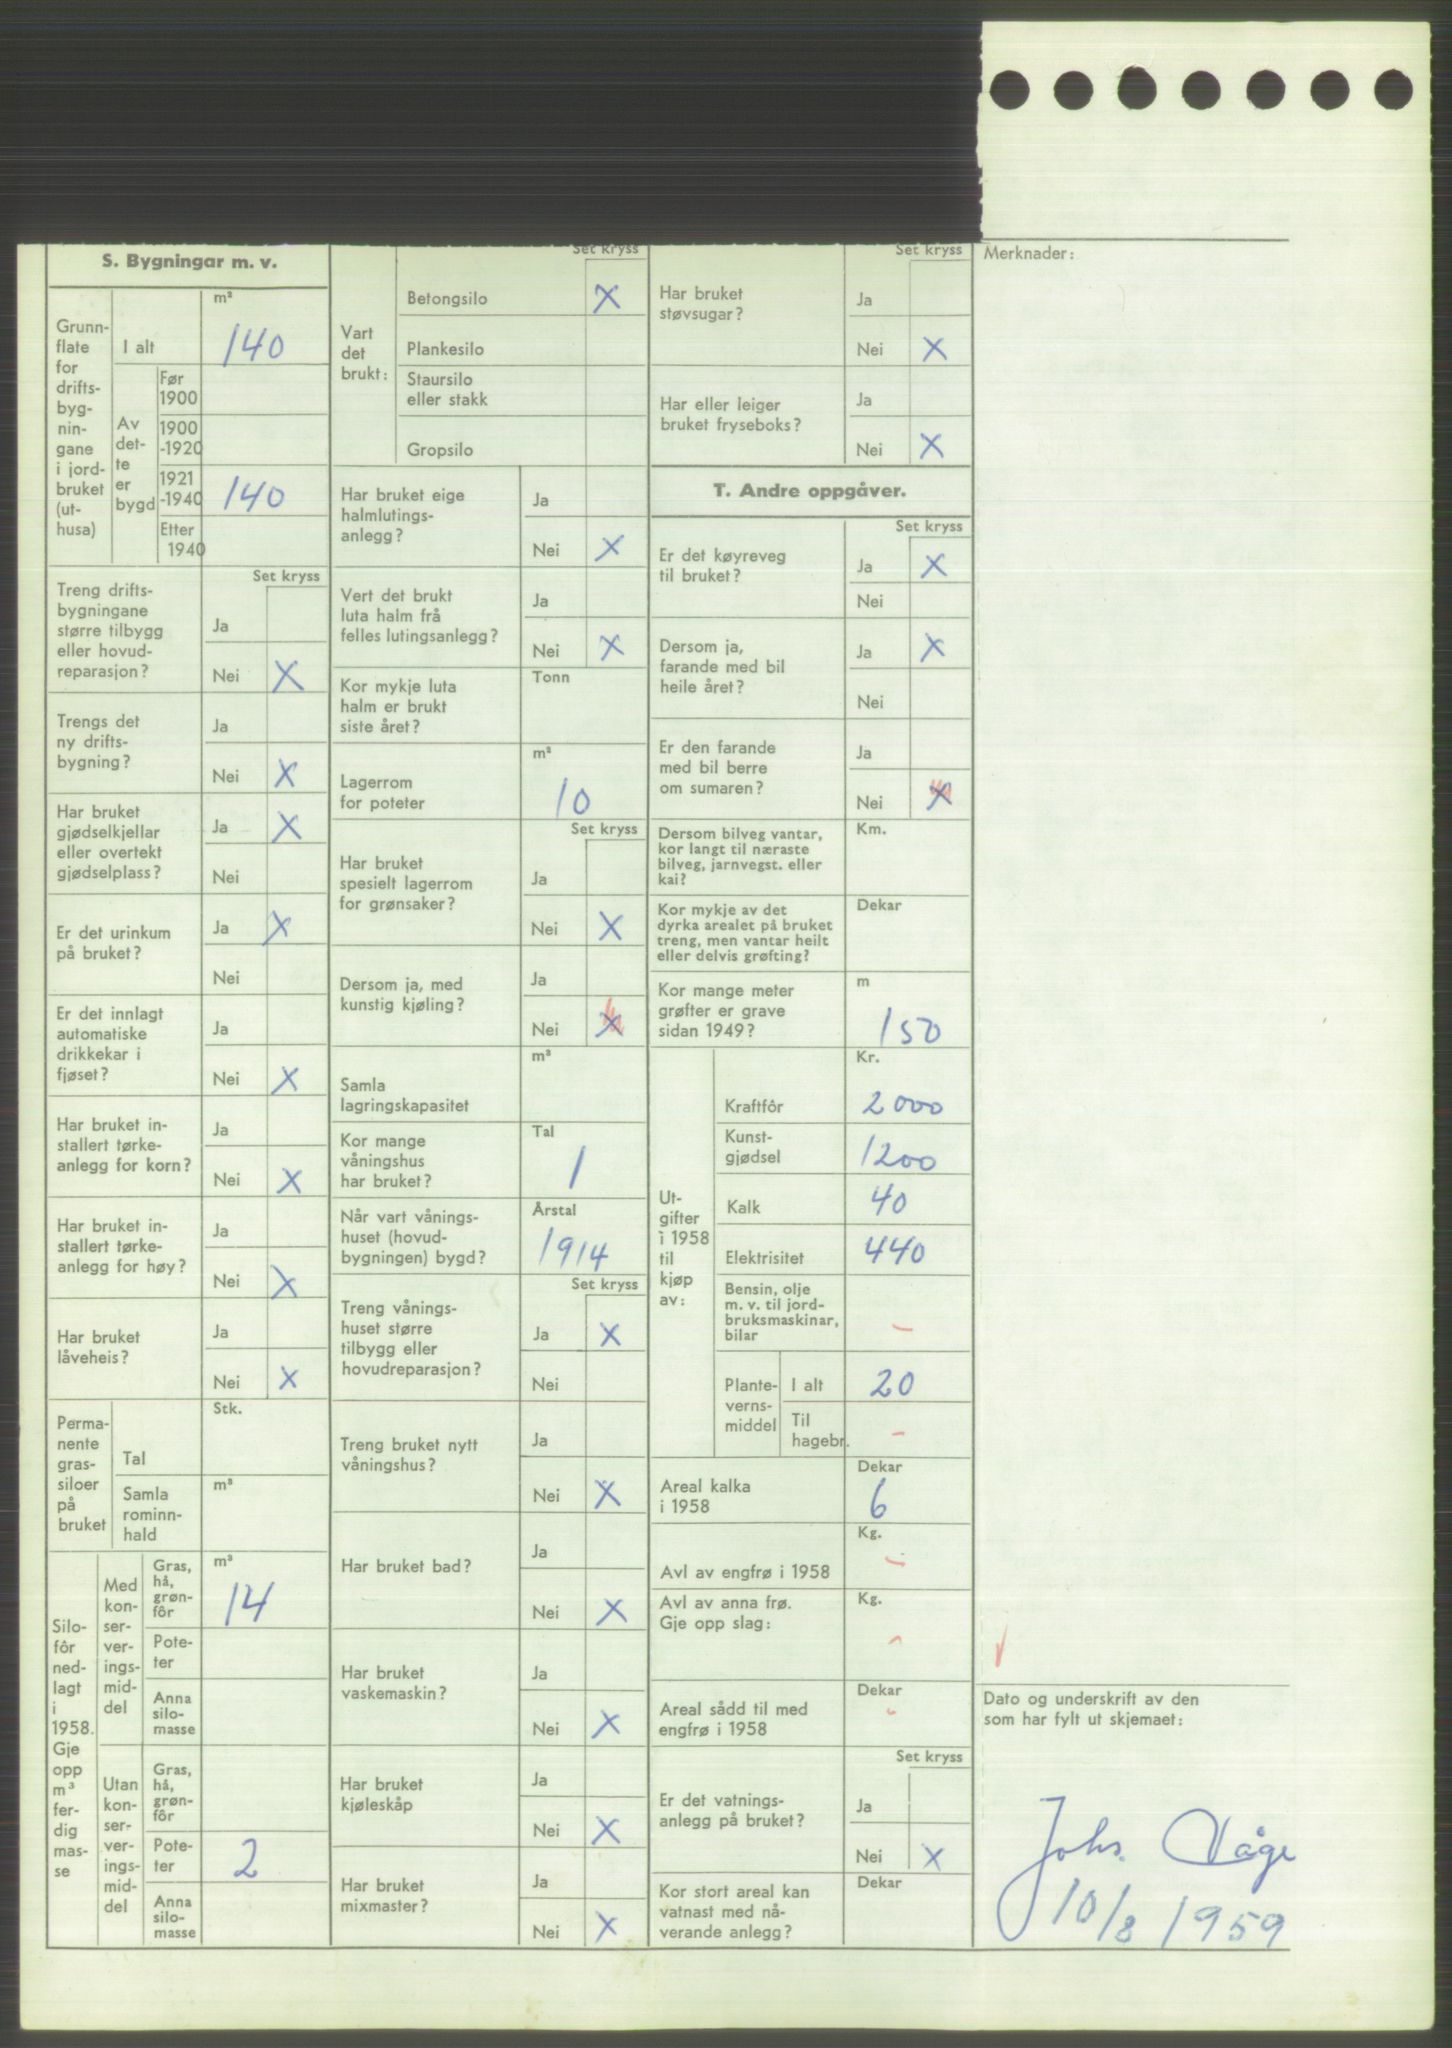 S. Bygningar m. v.
Grunn-
flate
for
drifts-
byg-
nin-
gane
i jord-
bruket
(ut-
husa)
m²
I alt
140
Av
det-
te
er
bygd
Før
1900
1900
-1920
1921
-1940
140
Etter
1940
Set kryss
Treng drifts-
bygningane
større tilbygg
eller hovud-
reparasjon?
Ja
Nei X
Trengs det
ny drifts-
bygning?
Ja
Nei X
Har bruket
gjødselkjellar
eller overtekt
gjødselplass?
Ja X
Nei
Er det urinkum
på bruket?
Ja X
Nei
Er det innlagt
automatiske
drikkekar i
fjøset?
Ja
Nei X
Har bruket in-
stallert tørke-
anlegg for korn?
Ja
Nei X
Har bruket in-
stallert tørke-
anlegg for høy?
Ja
Nei X
Har bruket
låveheis?
Ja
Nei X
Perma-
nente
gras-
siloer
på
bruket
Stk.
Tal
m³
Samla
rominn-
hald
Silo-
fôr
ned-
lagt
i
1958.
Gje
opp
m³
fer-
dig
mas-
se
Med
kon-
ser-
ver-
ings-
mid-
del
Gras,
hå,
grøn-
fôr
m³
14
Pote-
ter
Anna
silo-
masse
Utan
kon-
ser-
ver-
ings-
mid-
del
Gras,
hå,
grøn-
fôr
Pote-
ter
2
Anna
silo-
masse
Set kryss
Vart
det
brukt:
Betongsilo X
Plankesilo
Staursilo
eller stakk
Gropsilo
Har bruket eige
halmlutings-
anlegg?
Ja
Nei X
Vert det brukt
luta halm frå
felles lutingsanlegg?
Ja
Nei X
Kor mykje luta
halm er brukt
siste året?
Tonn
Lagerrom
for poteter
m³
10
Set kryss
Har bruket
spesielt lagerrom
for grønsaker?
Ja
Nei X
Dersom ja, med
kunstig kjøling?
Ja
Nei X
Samla
lagringskapasitet
m³
Kor mange
våningshus
har bruket?
Tal
1
Når vart vånings-
huset (hovud-
bygningen) bygd?
Årstal
1914
Set kryss
Treng vånings-
huset større
tilbygg eller
hovudreparasjon?
Ja X
Nei
Treng bruket nytt
våningshus?
Ja
Nei X
Har bruket bad?
Ja
Nei X
Har bruket
vaskemaskin?
Ja
Nei X
Har bruket
kjøleskåp
Ja
Nei X
Har bruket
mixmaster?
Ja
Nei X
Set kryss
Har bruket
støvsugar?
Ja
Nei X
Har eller leiger
bruket fryseboks?
Ja
Nei X
T. Andre oppgåver.
Set kryss
Er det køyreveg
til bruket?
Ja X
Nei
Dersom ja,
farande med bil
heile året?
Ja X
Nei
Er den farande
med bil berre
om sumaren?
Ja
Nei X
Dersom bilveg vantar,
kor langt til næraste
bilveg, jarnvegst. eller
kai?
Km.
Kor mykje av det
dyrka arealet på bruket
treng, men vantar heilt
eller delvis grøfting?
Dekar
Kor mange meter
grøfter er grave
sidan 1949?
m
150
Ut-
gifter
i 1958
til
kjøp
av:
Kr.
Kraftfôr 2000
Kunst-
gjødsel 1200
Kalk 40
Elektrisitet 440
Bensin, olje
m. v. til jord-
bruksmaskinar,
bilar –
Plante-
verns-
middel
I alt 20
Til
hagebr. –
Areal kalka
i 1958
Dekar
6
Avl av engfrø i 1958
Kg.
–
Avl av anna frø.
Gje opp slag:
Kg.
–
Areal sådd til med
engfrø i 1958
Dekar
-
Set kryss
Er det vatnings-
anlegg på bruket?
Ja
Nei X
Kor stort areal kan
vatnast med nå-
verande anlegg?
Dekar
Merknader:
Dato og underskrift av den
som har fylt ut skjemaet:
Johs. Våge
10/8 1959